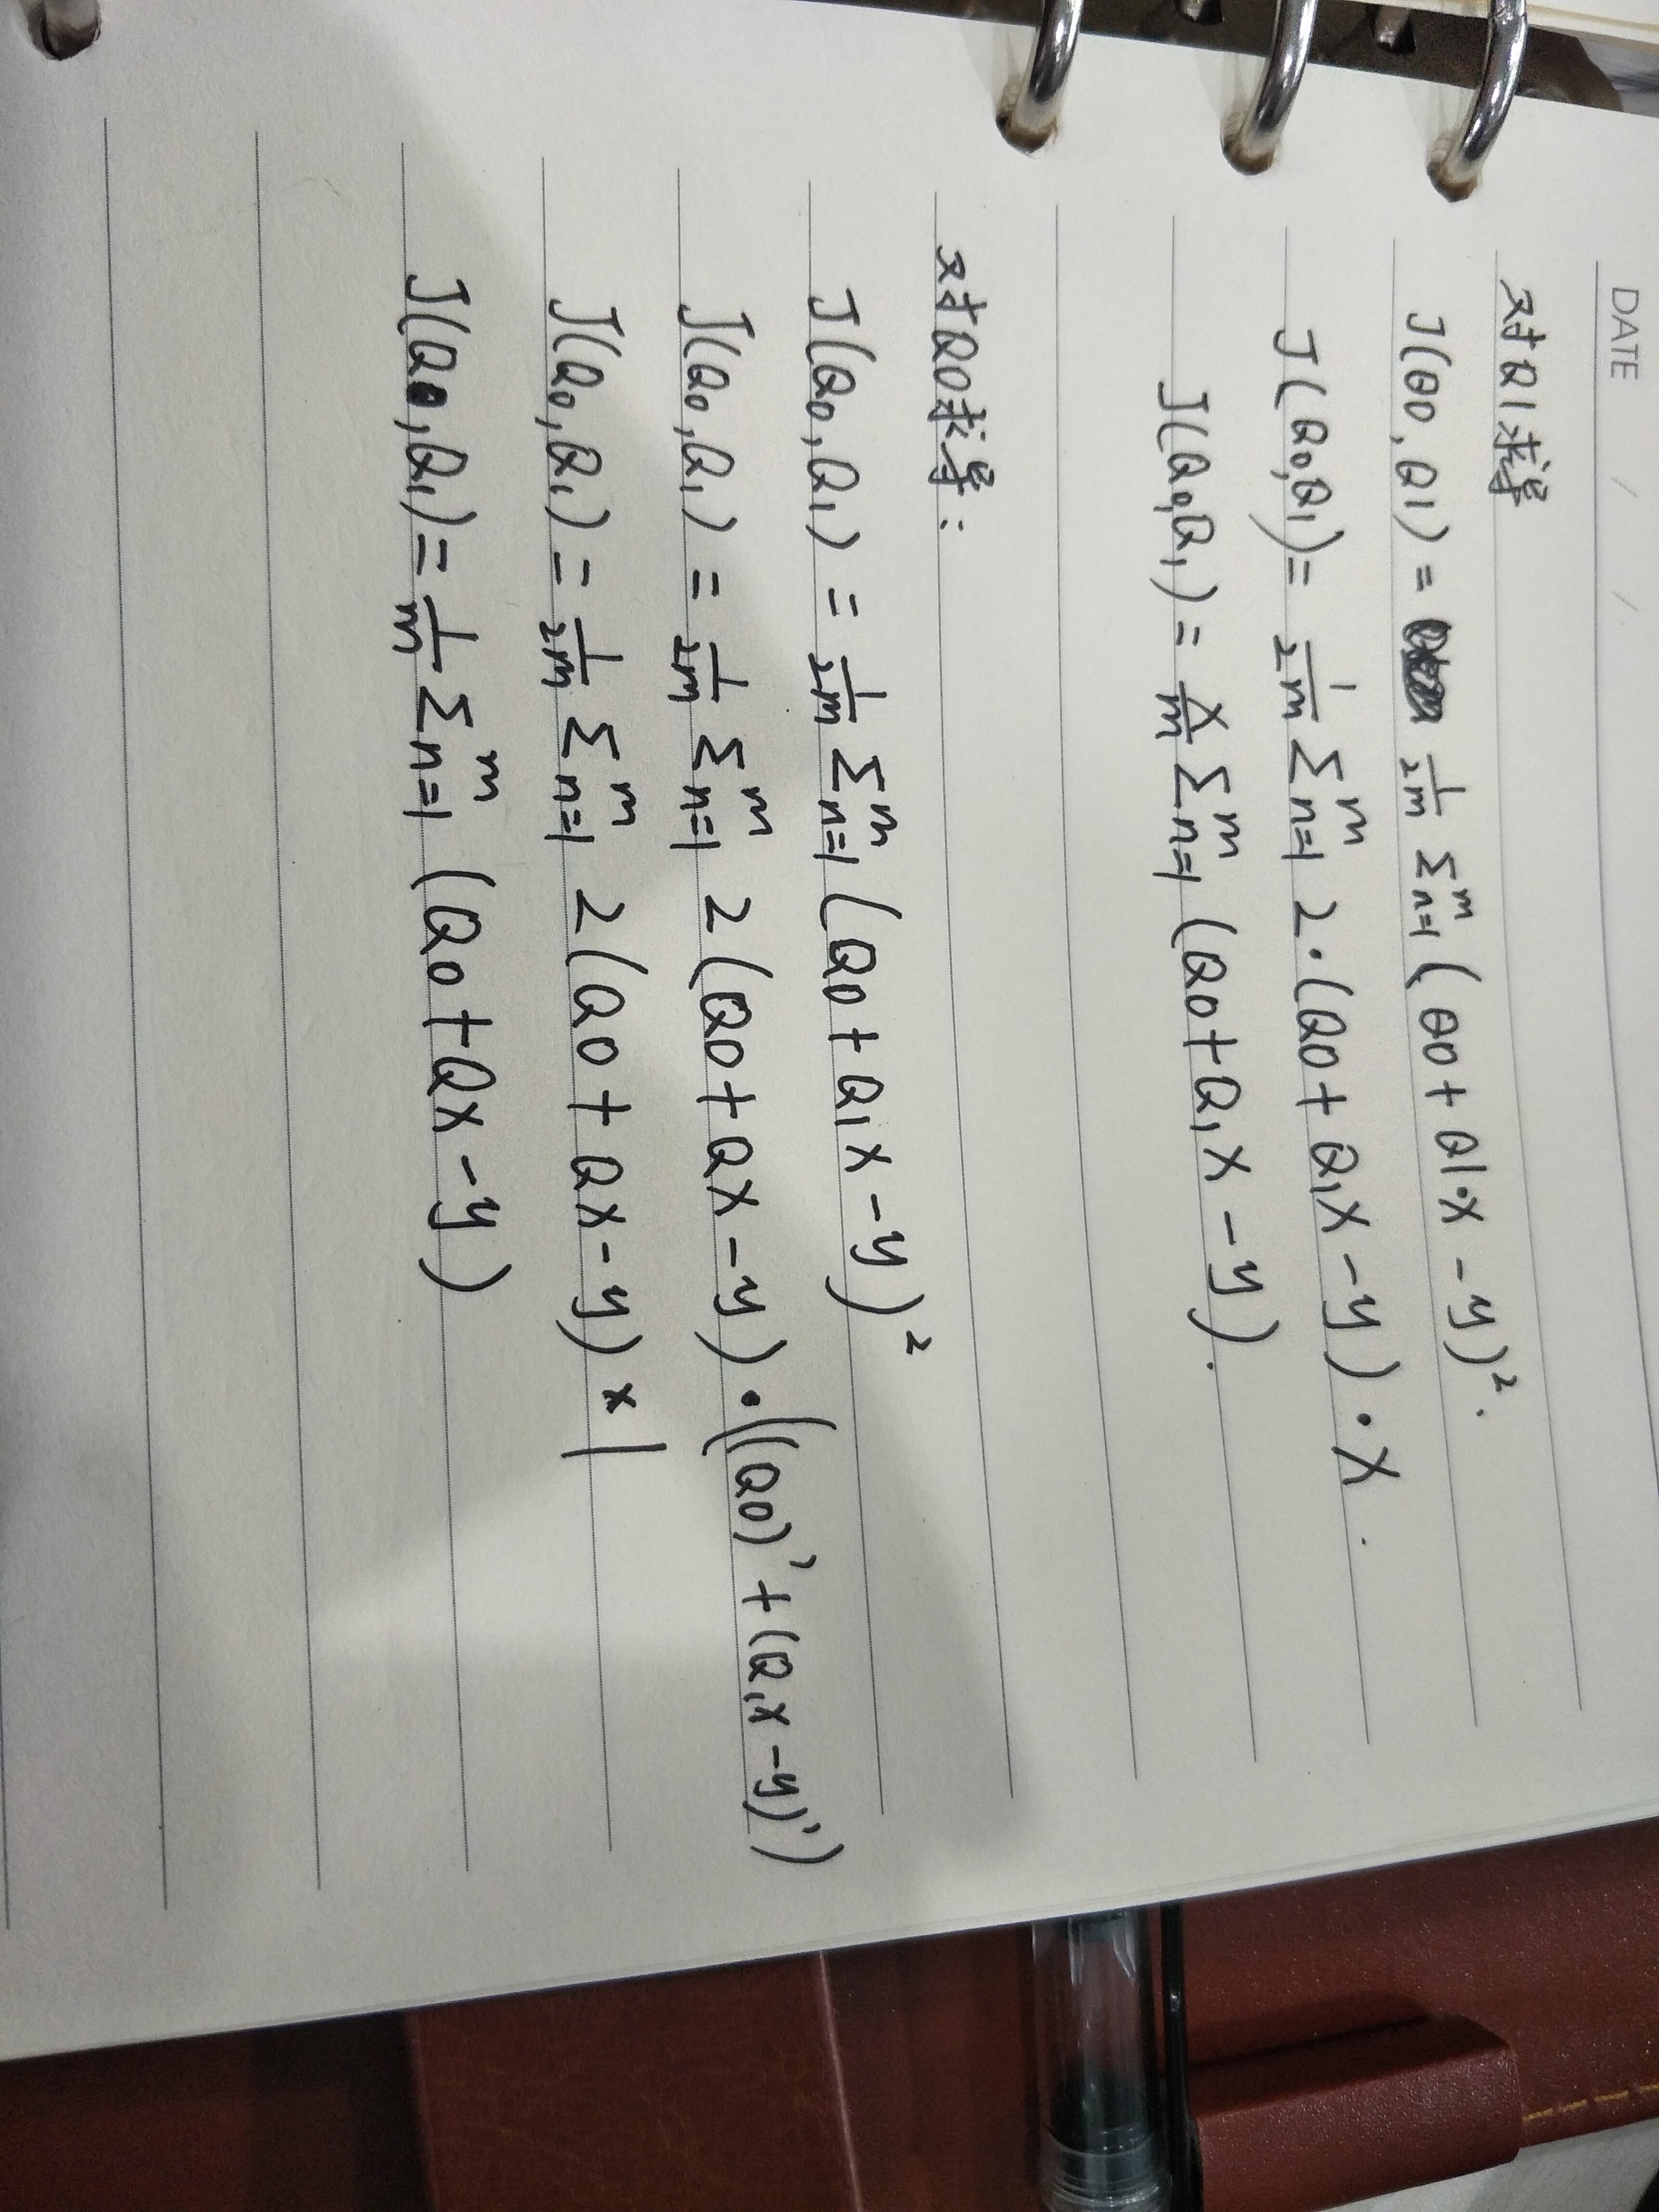 DATE / /
对Q1求导
J(θ0,Q1) = 1/2m Σn=1^m (θ0 + Q1·x - y)².
J(Q0,Q1) = 1/2m Σn=1^m 2·(Q0 + Q1x - y)·x.
J(Q0,Q1) = x/m Σn=1^m (Q0 + Q1x - y).
对Q0求导:
J(Q0,Q1) = 1/2m Σn=1^m (Q0 + Q1x - y)²
J(Q0,Q1) = 1/2m Σn=1^m 2(Q0 + Qx - y)·((Q0)' + (Q1x - y)')
J(Q0,Q1) = 1/2m Σn=1^m 2(Q0 + Qx - y) × 1
J(Q0,Q1) = 1/m Σn=1^m (Q0 + Qx - y)